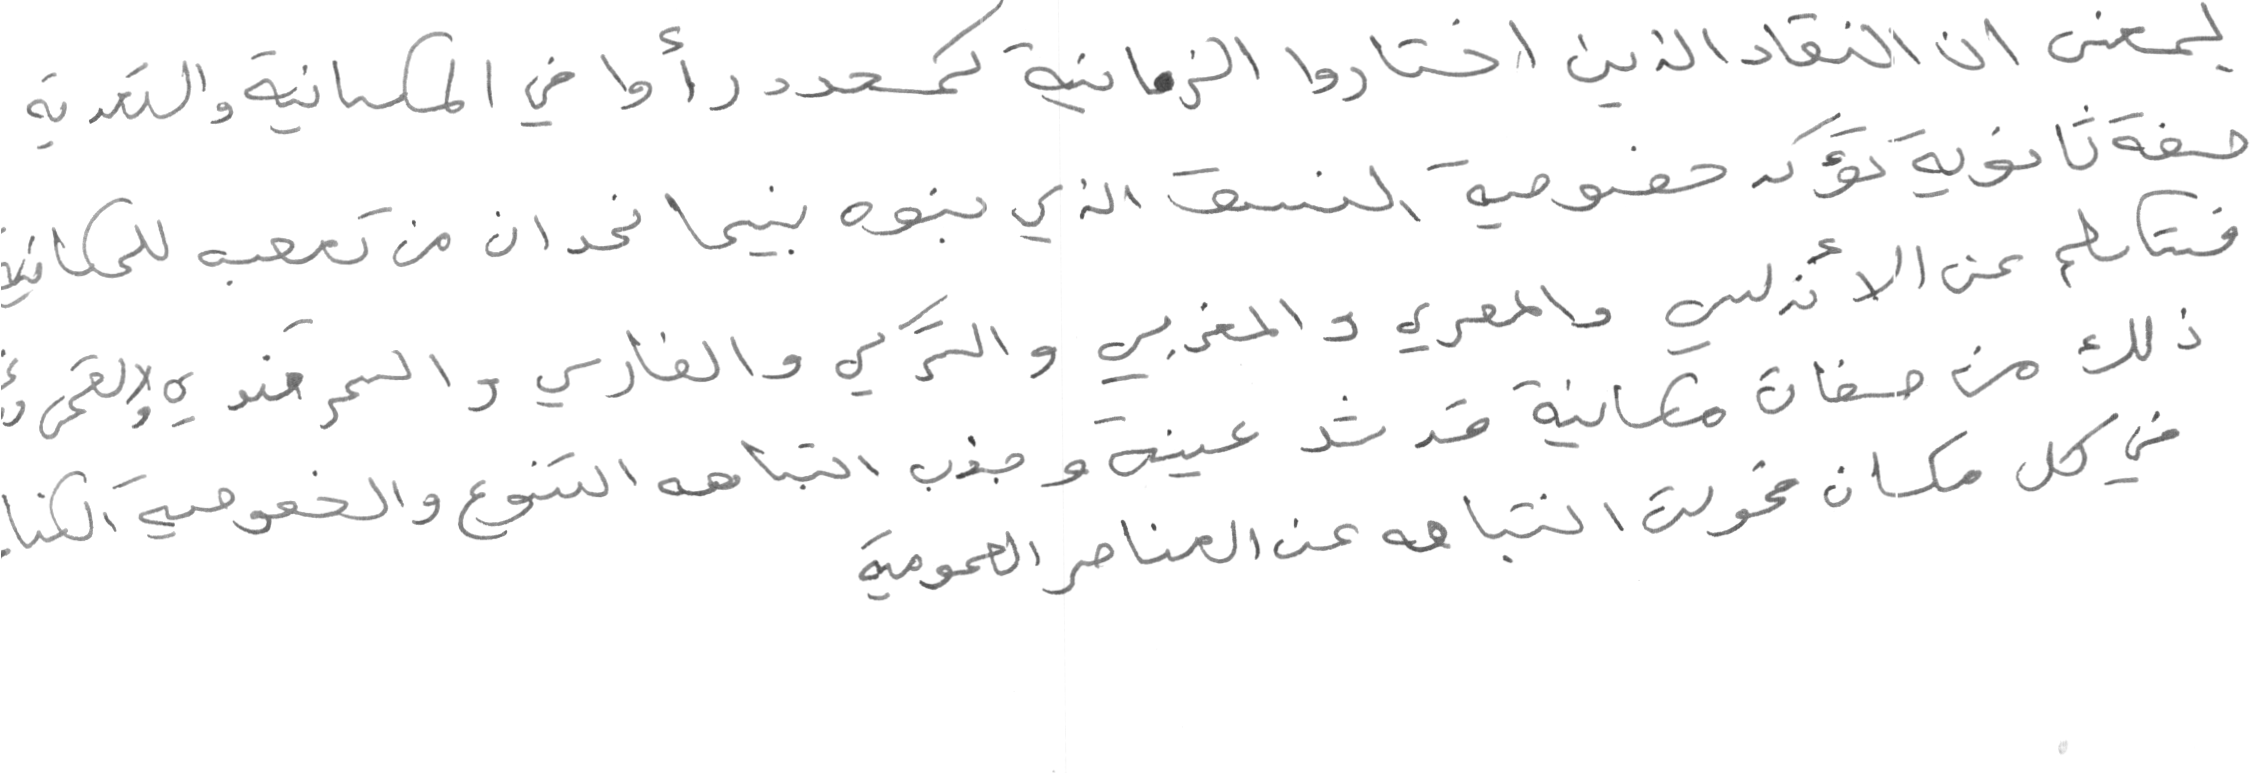 بمعنى ان النقاد الذين اختاروا الزمانية كمحدد رأوا في المكانية والتعدية
صفة ثانوية تؤكد خصوصية النسق الذي بنوه بينما نجد ان من تعصب للمكانية
فتكلم عن الأندلسي والمصري والمغربي والتركي والفارسي والسمرقندي والقمي
ذلك من صفات مكانية قد شد عينة وجذب انتباهه التنوع والخصوصية
في كل مكان تحولت انتباهه عن العناصر العمومية